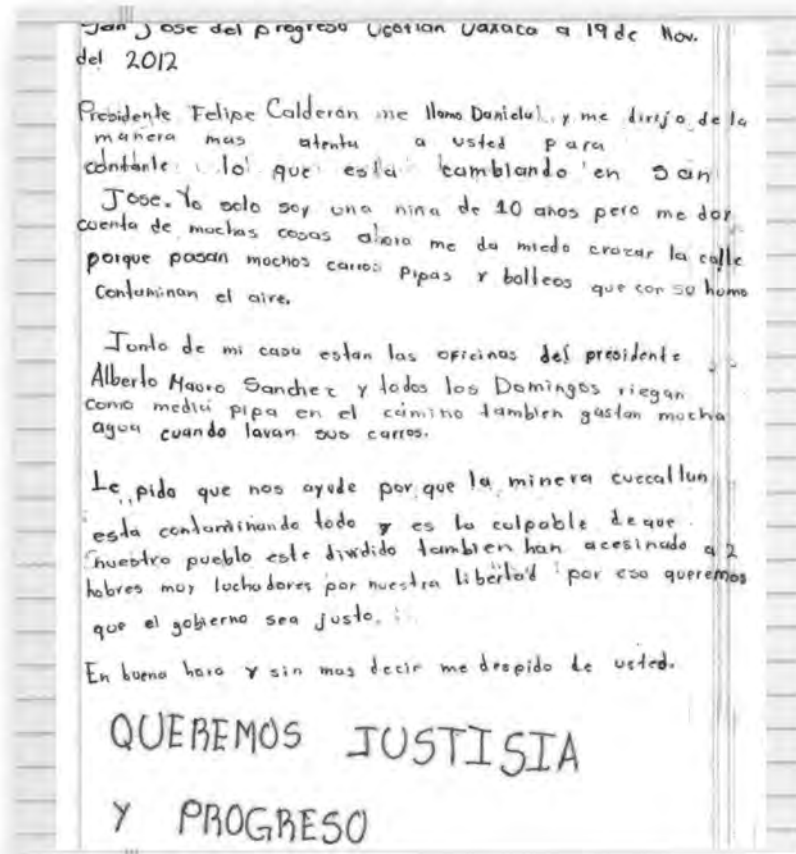 San Jose del progreso Ocotlan Oaxaca a 19 de Nov.
del 2012
Presidente Felipe Calderon me llamo Daniela y me dirijo de la
manera mas atenta a usted para
contarle lo que esta cambiando en San
Jose. Yo solo soy una nina de 10 anos pero me doy
cuenta de muchas cosas ahora me da miedo cruzar la calle
porque pasan muchos carros pipas y bolteos que con su humo
contaminan el aire.
Junto de mi casa estan las oficinas del presidente
Alberto Mauro Sanchez y todos los Domingos riegan
como media pipa en el camino tambien gastan mucha
agua cuando lavan sus carros.
Le pido que nos ayude por que la minera cuzcatlun
esta contaminando todo y es la culpable de que
nuestro pueblo este dividido tambien han acesinado a 2
hobres muy luchadores por nuestra libertad por eso queremos
que el gobierno sea justo.
En buena hora y sin mas decir me despido de usted.
QUEREMOS JUSTISIA
Y PROGRESO